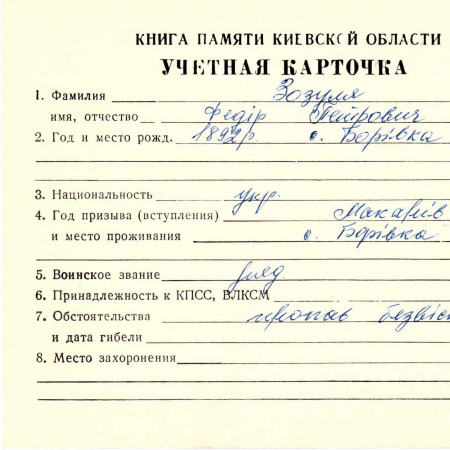 КНИГА ПАМЯТИ КИЕВСКОЙ ОБЛАСТИ
УЧЕТНАЯ КАРТОЧКА
1. Фамилия Зозуля
имя, отчество Федір Петрович
2. Год и место рожд. 1892р. с. Борівка
3. Национальность укр.
4. Год призыва (вступления) Макарів
и место проживания с. Борівка
5. Воинское звание ряд.
6. Принадлежность к КПСС, ВЛКСМ
7. Обстоятельства пропав безвіс
и дата гибели
8. Место захоронения